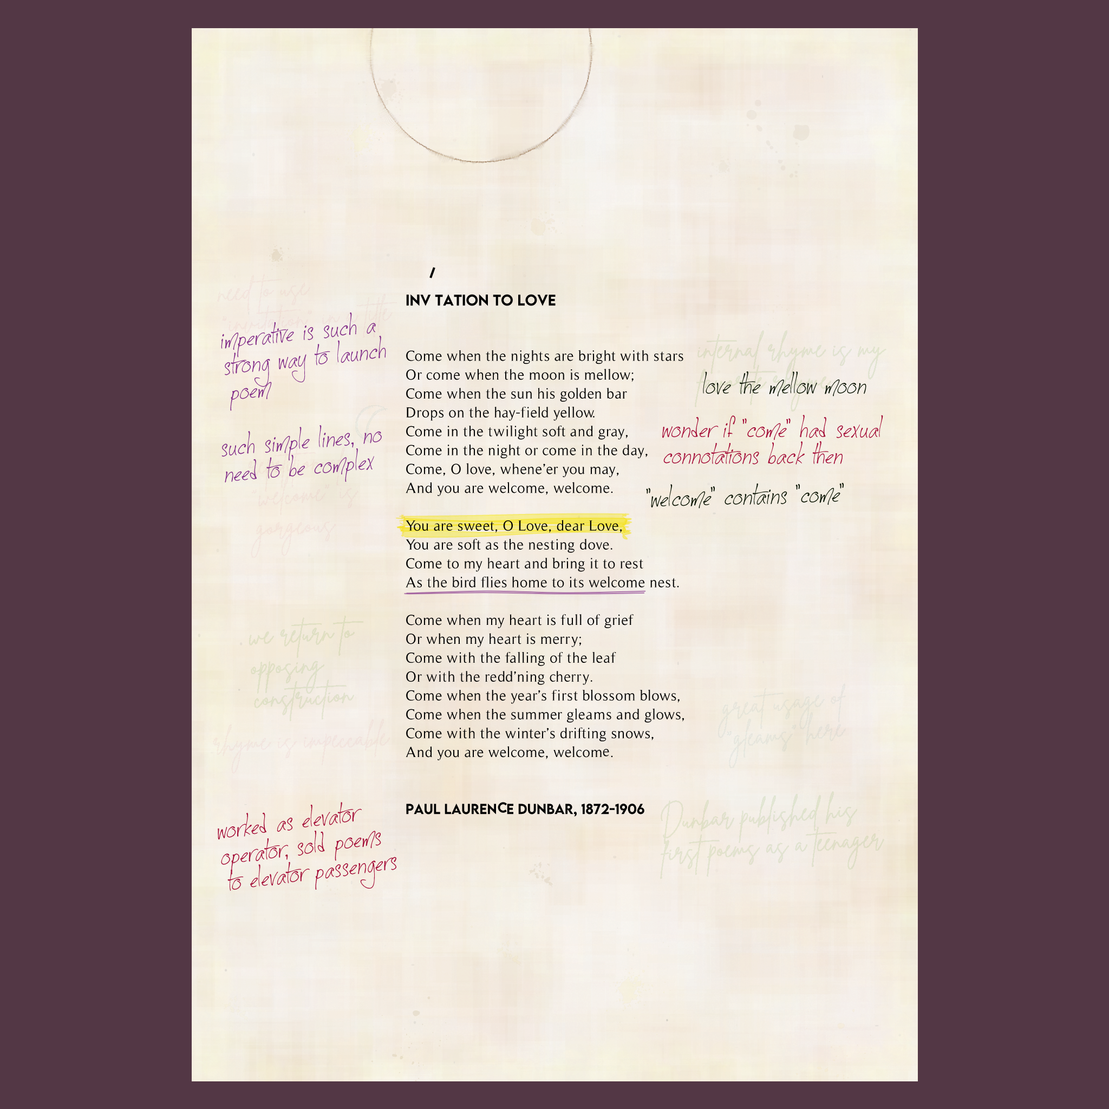 /
INV TATION TO LOVE
need to use
imperative is such a
strong way to launch
poem
such simple lines, no
need to be complex
welcome is
gorgeous
Come when the nights are bright with stars
Or come when the moon is mellow;
Come when the sun his golden bar
Drops on the hay-field yellow.
Come in the twilight soft and gray,
Come in the night or come in the day,
Come, O love, whene’er you may,
And you are welcome, welcome.
internal rhyme is my
love the mellow moon
wonder if "come" had sexual
connotations back then
"welcome" contains "come"
You are sweet, O Love, dear Love,
You are soft as the nesting dove.
Come to my heart and bring it to rest
As the bird flies home to its welcome nest.
we return to
opposing
construction
rhyme is impeccable
Come when my heart is full of grief
Or when my heart is merry;
Come with the falling of the leaf
Or with the redd’ning cherry.
Come when the year’s first blossom blows,
Come when the summer gleams and glows,
Come with the winter’s drifting snows,
And you are welcome, welcome.
great usage of
"gleams" here
worked as elevator
operator, sold poems
to elevator passengers
PAUL LAURENCE DUNBAR, 1872-1906
Dunbar published his
first poems as a teenager